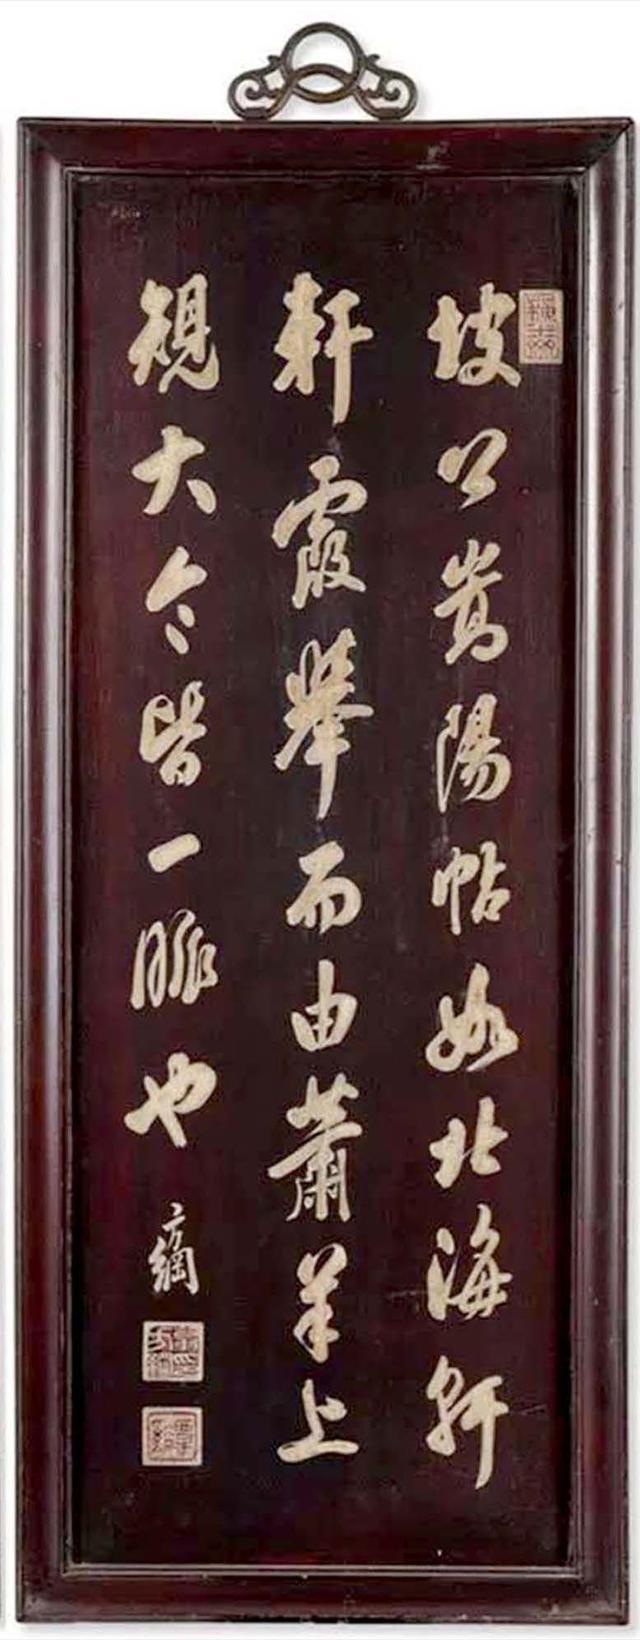 坡公嵩陽帖如北海軒
軒霞舉而由蕭羊上
規大令皆一脈也
方綱